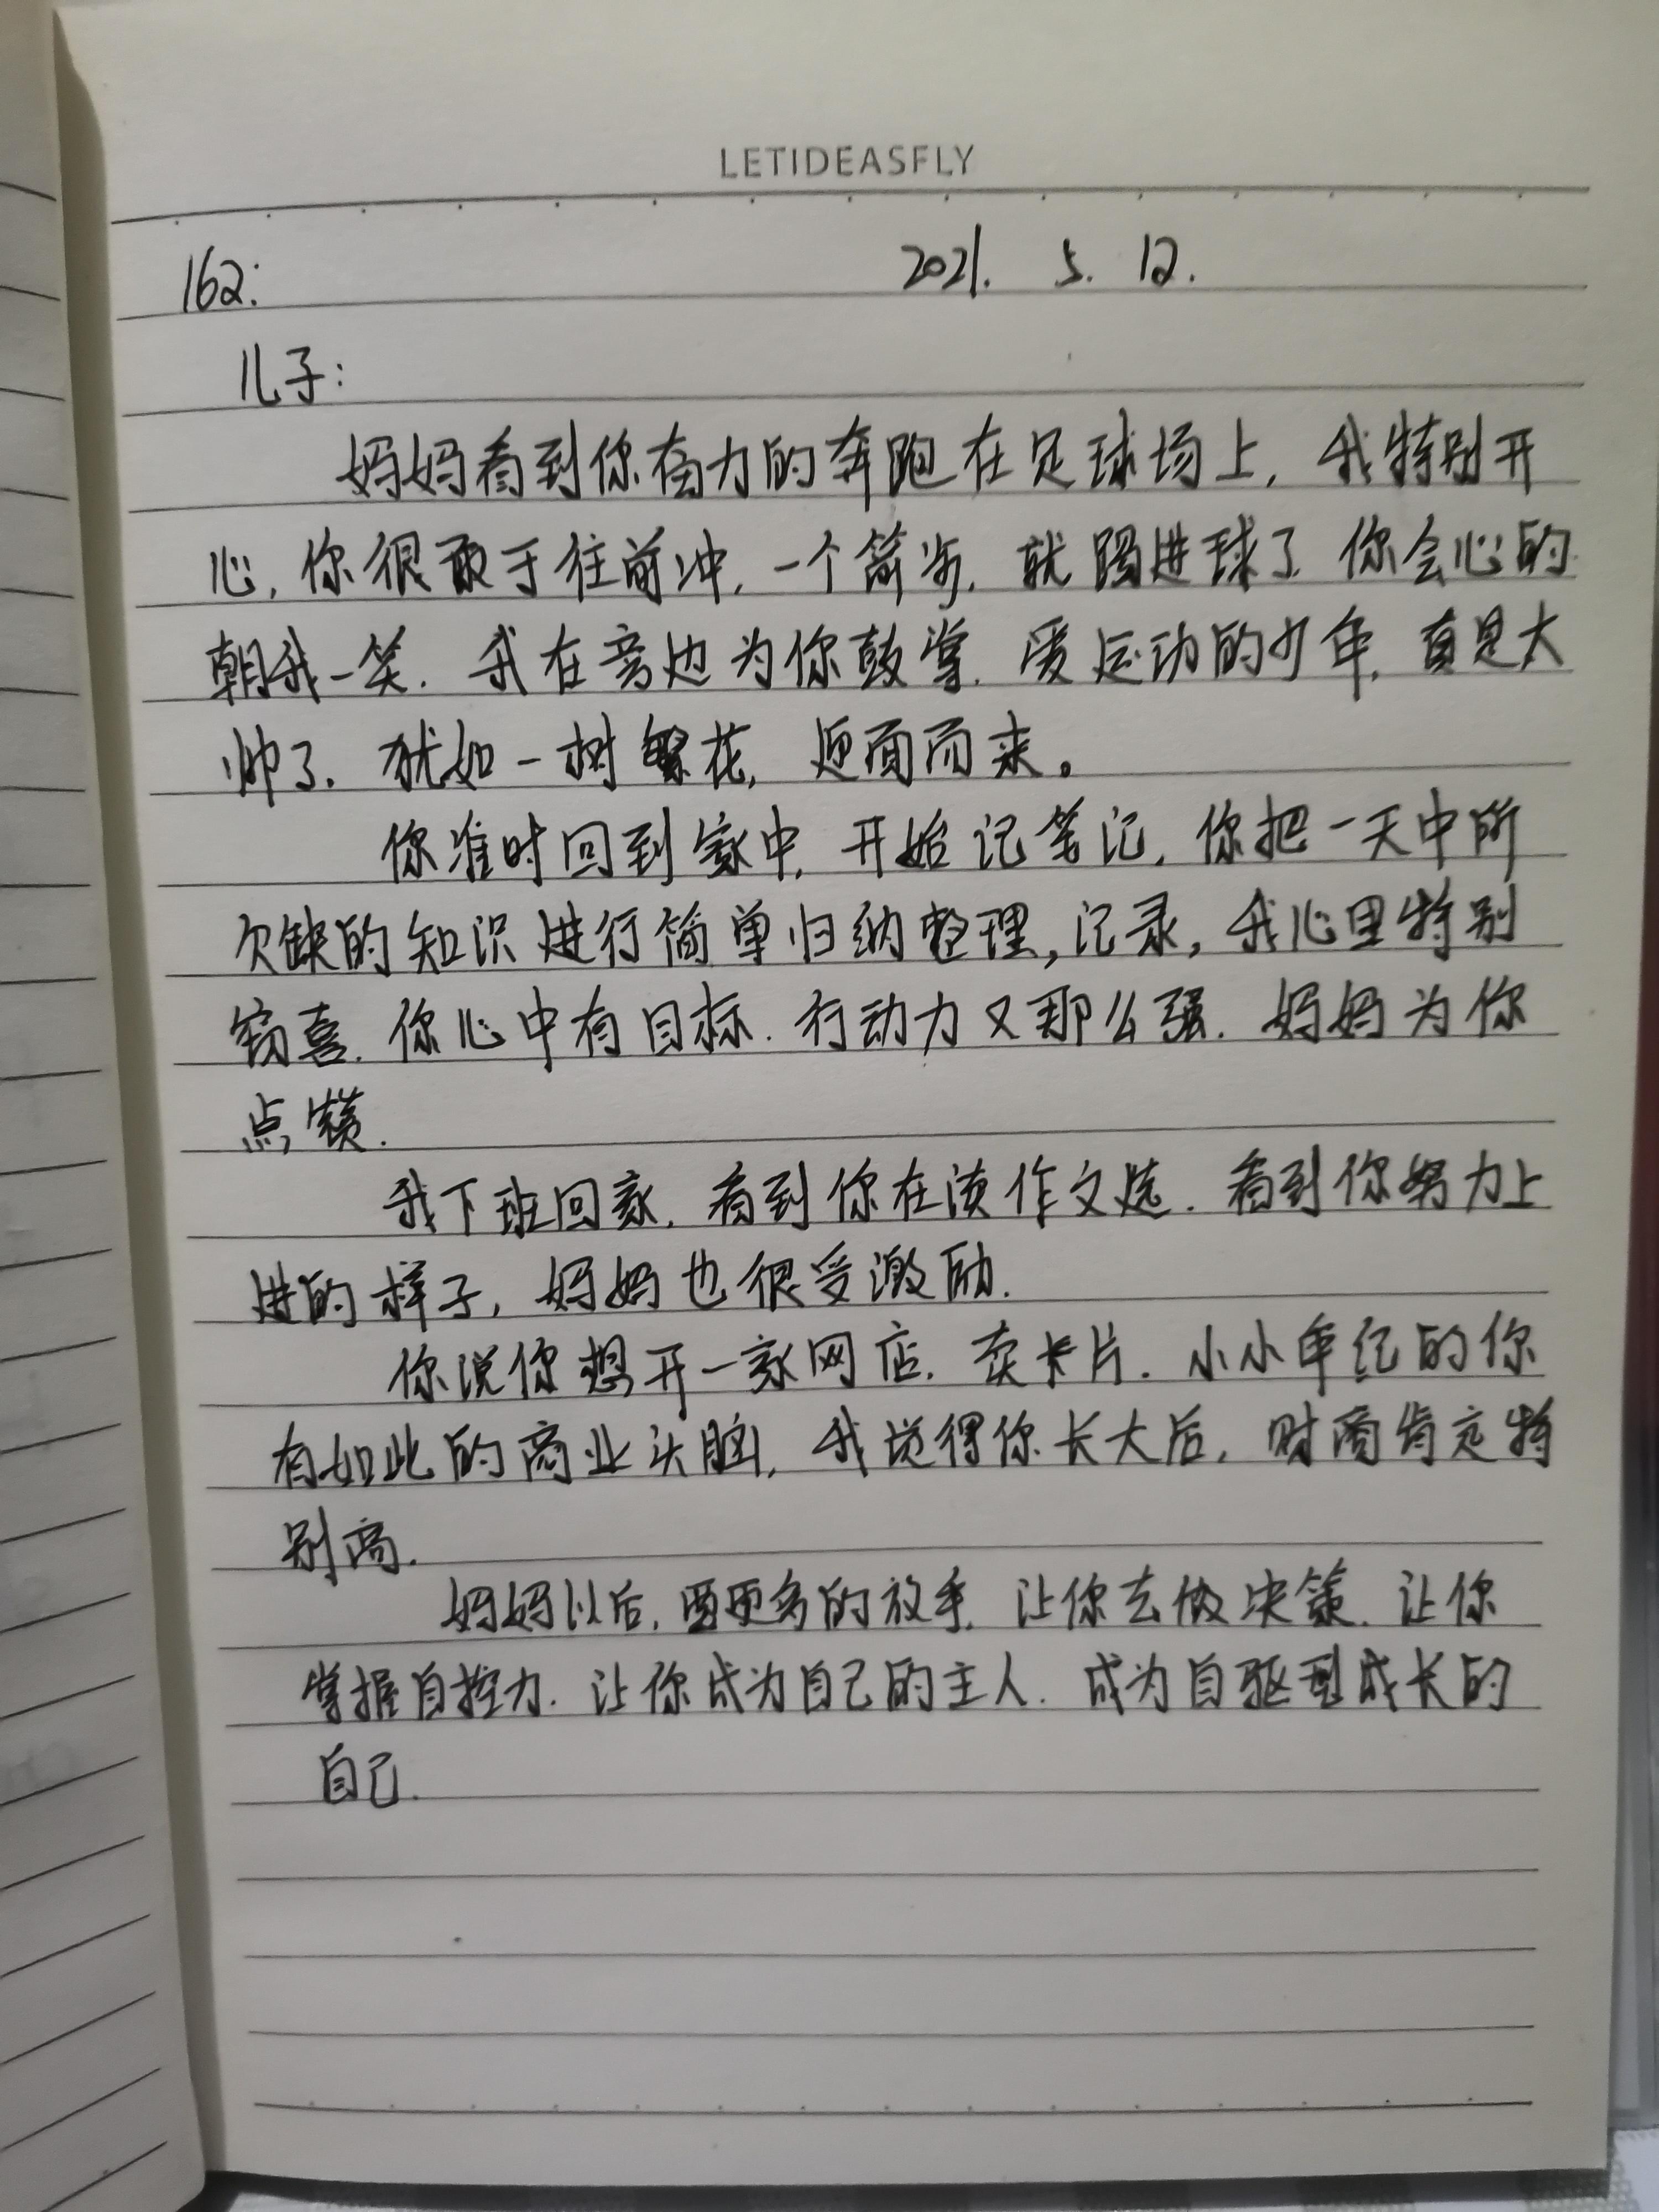 LETIDEASFLY
162: 2021. 5. 12.
儿子:
妈妈看到你奋力的奔跑在足球场上, 我特别开
心, 你很敢于往前冲, 一个箭步, 就踢进球了. 你会心的
朝我一笑. 我在旁边为你鼓掌. 爱运动的少年, 真是太
帅了. 犹如一树繁花, 迎面而来。
你准时回到家中, 开始记笔记, 你把一天中所
欠缺的知识进行简单归纳整理,记录, 我心里特别
窃喜. 你心中有目标. 行动力又那么强. 妈妈为你
点赞.
我下班回家. 看到你在读作文选. 看到你努力上
进的样子, 妈妈也很受激励.
你说你想开一家网店. 卖卡片. 小小年纪的你
有如此的商业头脑, 我觉得你长大后, 财商肯定特
别高.
妈妈以后, 要更多的放手, 让你去做决策. 让你
掌握自控力. 让你成为自己的主人. 成为自驱型成长的
自己.